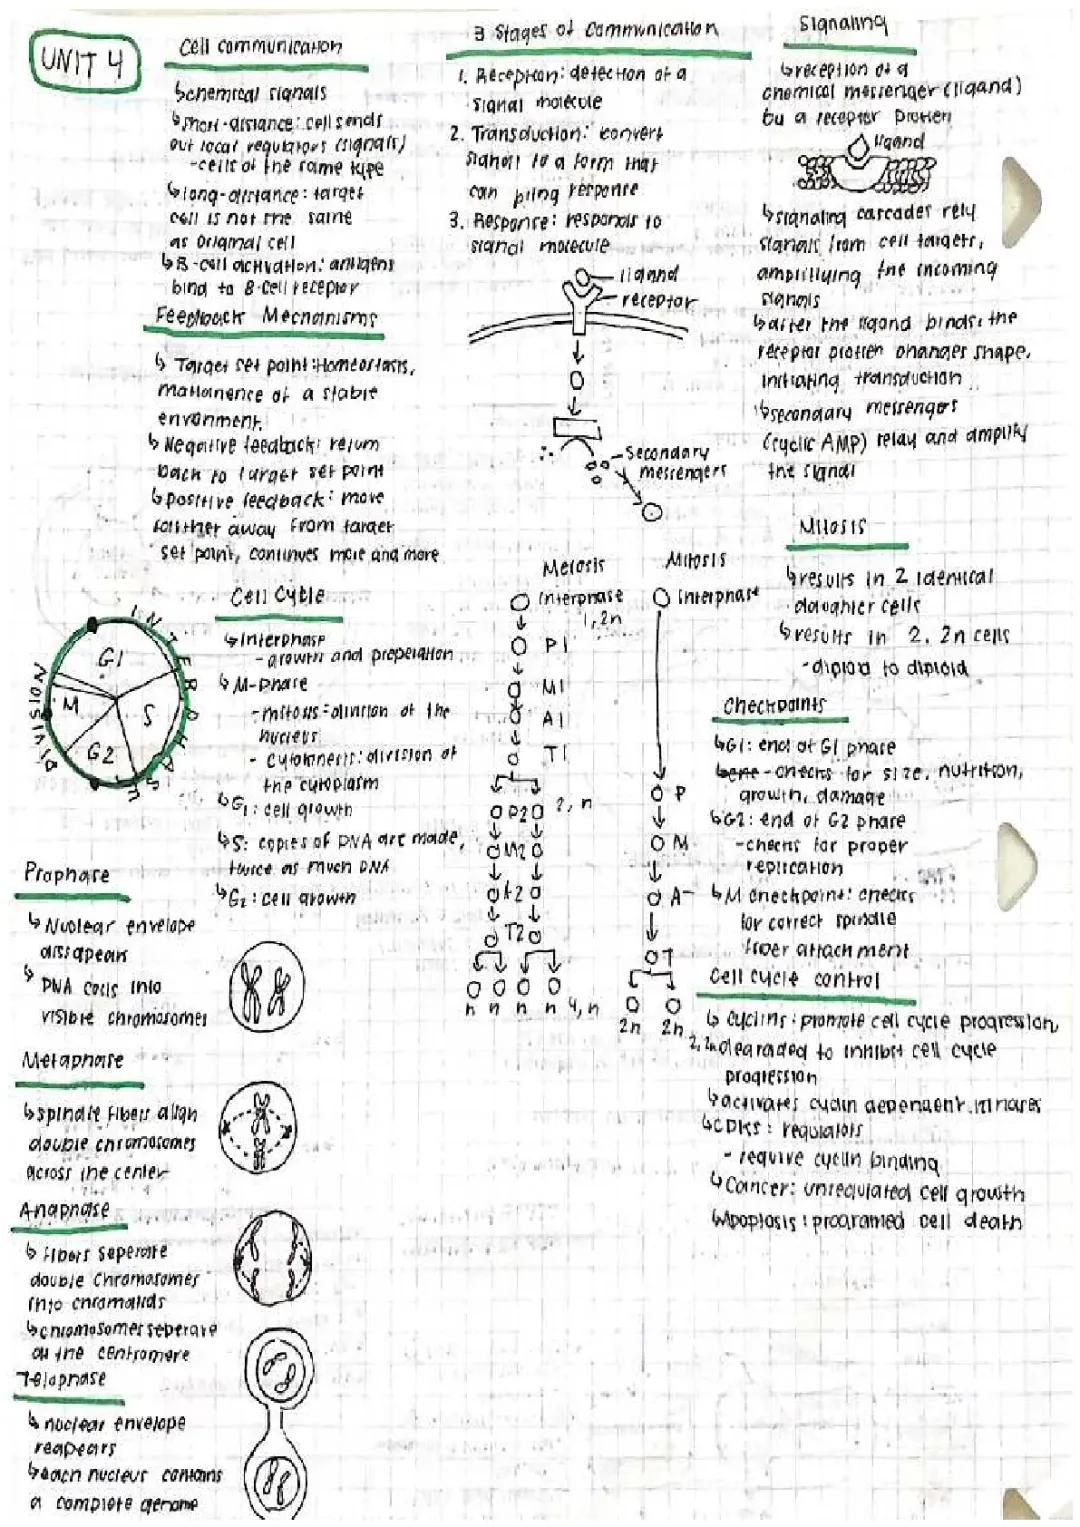 UNIT 4
Cell communication
↳chemical signals
↳short-distance: cell sends
out local regulators (signals)
-cells of the same type
↳long-distance: target
cell is not the same
as original cell
↳B-cell activation: antigens
bind to B-cell receptor
Feedback Mechanisms
↳ Target set point: Homeostasis,
of a stable
↳ Negative feedback: return
back to target set point
↳positive feedback: move
farther away from target
set point, continues more and more
3 Stages of Communication
1. Reception: detection of a
signal molecule
2. Transduction: convert
signal to a form that
can bring response
3. Response: responds to
signal molecule
ligand
receptor
Secondary
messengers
Signaling
↳reception of a
chemical messenger (ligand)
by a receptor protein
ligand
↳signaling cascades rely
signals from cell targets,
amplifying the incoming
signals
↳after the ligand binds, the
receptor protein changes shape,
initiating transduction
↳secondary messengers
(cyclic AMP) relay and amplify
the signal
Cell Cycle
INTERPHASE
DIVISION
G1
S
G2
M
↳Interphase
-growth and
↳M-phase
-mitosis: division of the
nucleus
- cytokinesis: division of
the cytoplasm
↳G1: cell growth
↳S: copies of DNA are made,
twice as much DNA
↳G2: cell growth
Meiosis
Interphase
1, 2n
P1
M1
A1
T1
P2
2, n
M2
A2
T2
n n n n 4, n
Mitosis
Interphase
P
M
A
T
2n 2n
2, 2n
Mitosis
↳results in 2 identical
daughter cells
↳results in 2, 2n cells
-diploid to diploid
Checkpoints
↳G1: end of G1 phase
-checks for size, nutrition,
growth, damage
↳G2: end of G2 phase
-checks for proper
replication
↳M checkpoint: checks
for correct spindle
fiber attachment
Cell cycle control
↳ cyclins: promote cell cycle progression,
degraded to inhibit cell cycle
progression
↳activates cyclin dependent kinases
↳CDKs: regulators
- require cyclin binding
↳Cancer: unregulated cell growth
↳Apoptosis: programed cell death
Prophase
↳ Nuclear envelope
dissapears
↳ DNA coils into
visible chromosomes
Metaphase
↳spindle fibers align
double chromosomes
across the center
Anaphase
↳ Fibers seperate
double chromosomes
into chromatids
↳chromosomes seperate
at the centromere
Telophase
↳ nuclear envelope
reapears
↳each nucleus contains
a complete genome